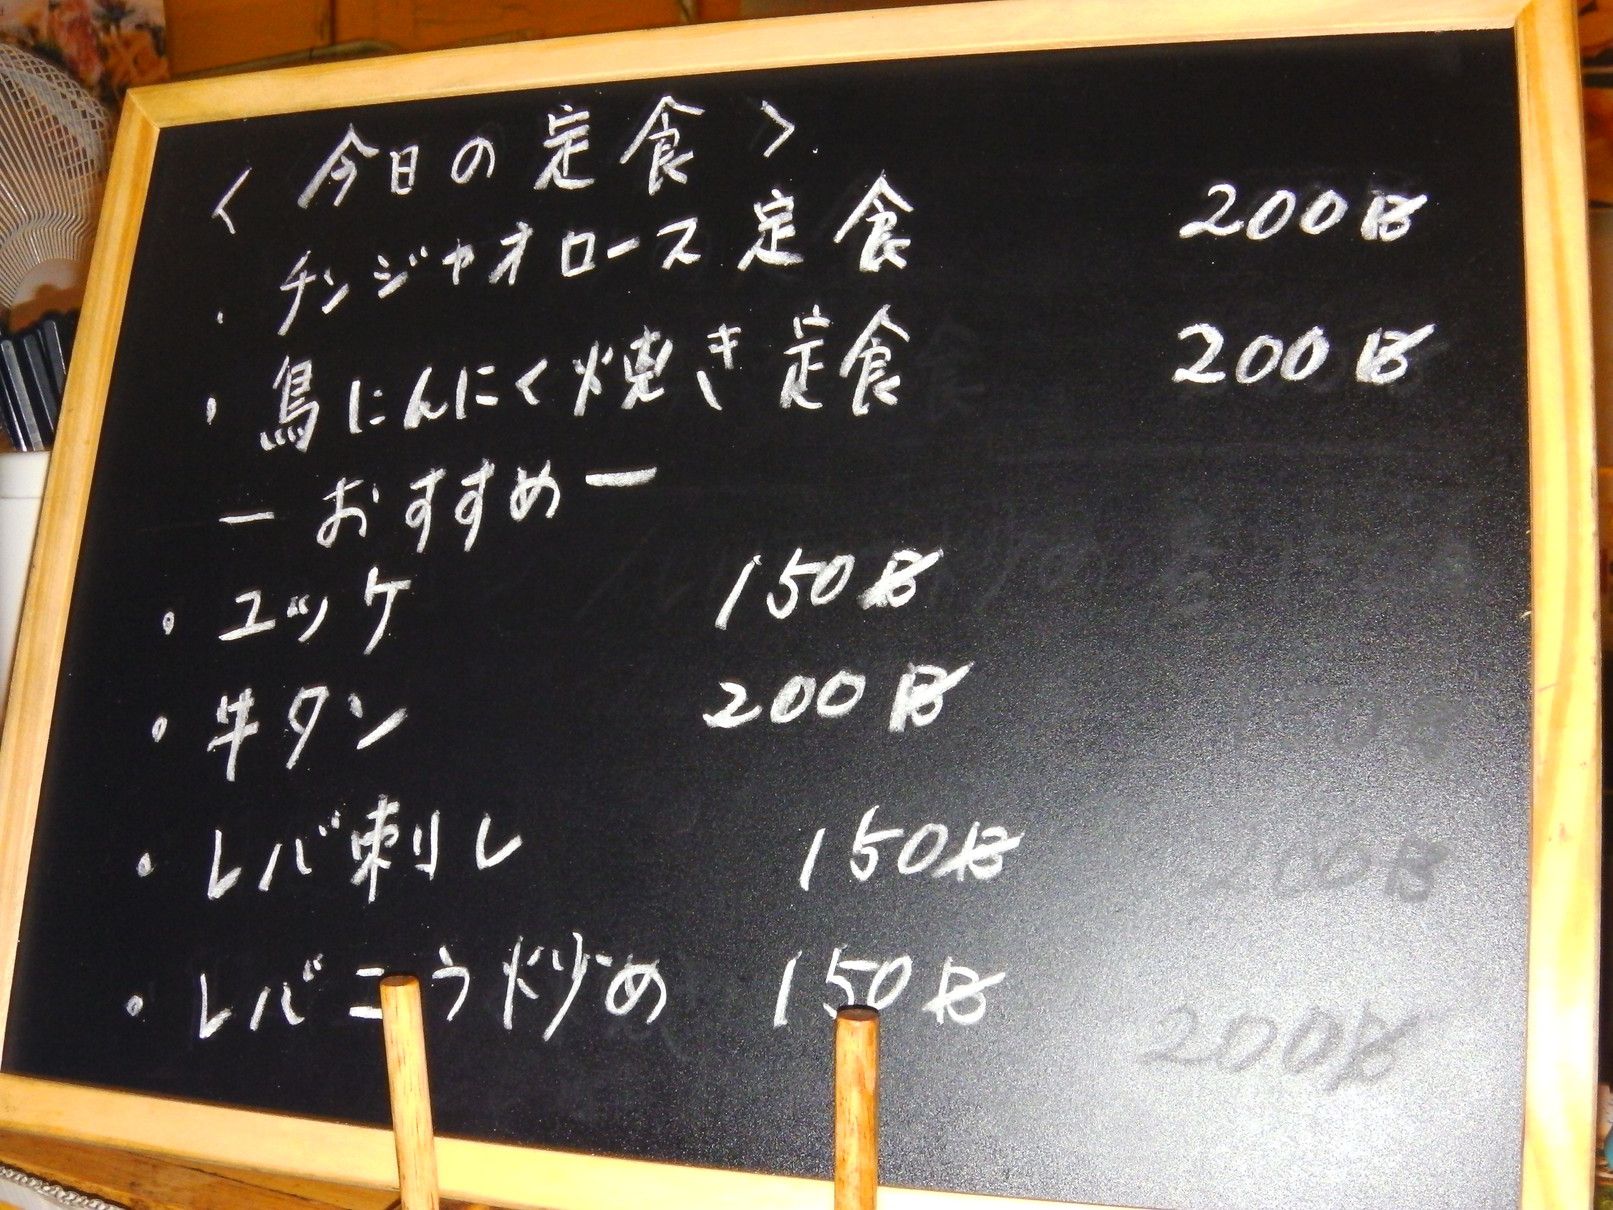 ＜今日の定食＞
・チンジャオロース定食 200฿
・鳥にんにく焼き定食 200฿
ーおすすめー
・ユッケ 150฿
・牛タン 200฿
・レバ刺し 150฿
・レバこう炒め 150฿
200฿